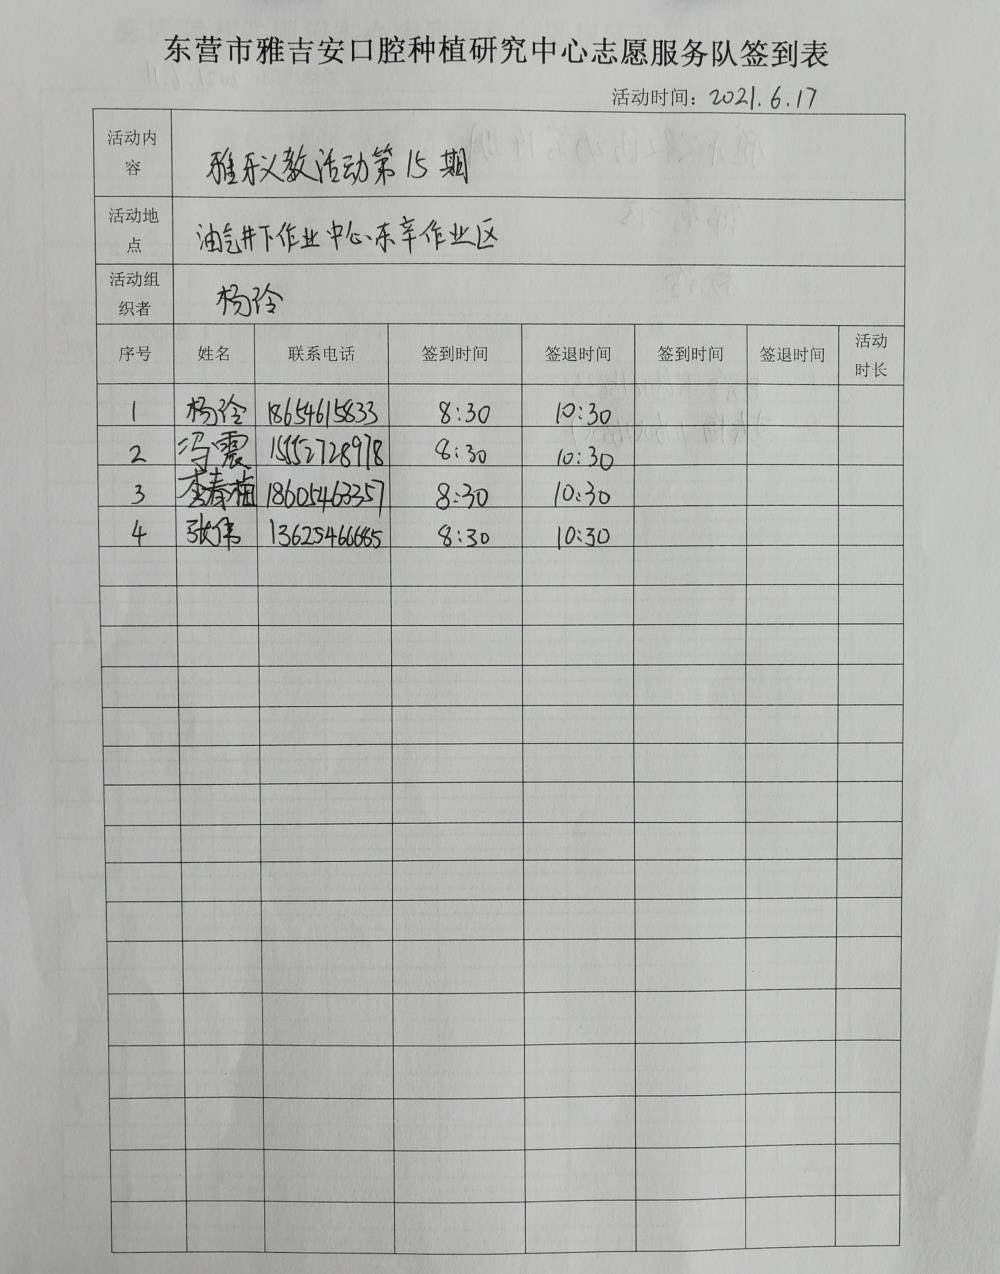 东营市雅吉安口腔种植研究中心志愿服务队签到表
活动时间：2021.6.17
活动内容 雅乐义教活动第15期
活动地点 油气井下作业中心东辛作业区
活动组织者 杨玲
序号 姓名 联系电话 签到时间 签退时间 签到时间 签退时间 活动时长
1 杨玲 18654615833 8:30 10:30
2 冯震 15552728978 8:30 10:30
3 李春植 18605463357 8:30 10:30
4 张伟 13625466685 8:30 10:30